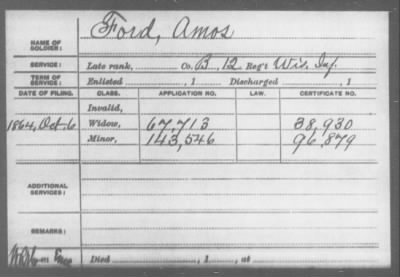 Ford, Amos
NAME OF SOLDIER:
SERVICE: Late rank, Co. B, 12 Reg't Wis. Inf.
TERM OF SERVICE: Enlisted , 1 Discharged , 1
DATE OF FILING. CLASS. APPLICATION NO. LAW. CERTIFICATE NO.
Invalid,
1864, Oct. 6 Widow, 67,713 38,930
Minor, 143,546 96,879
ADDITIONAL SERVICES:
REMARKS:
Died , 1 , at